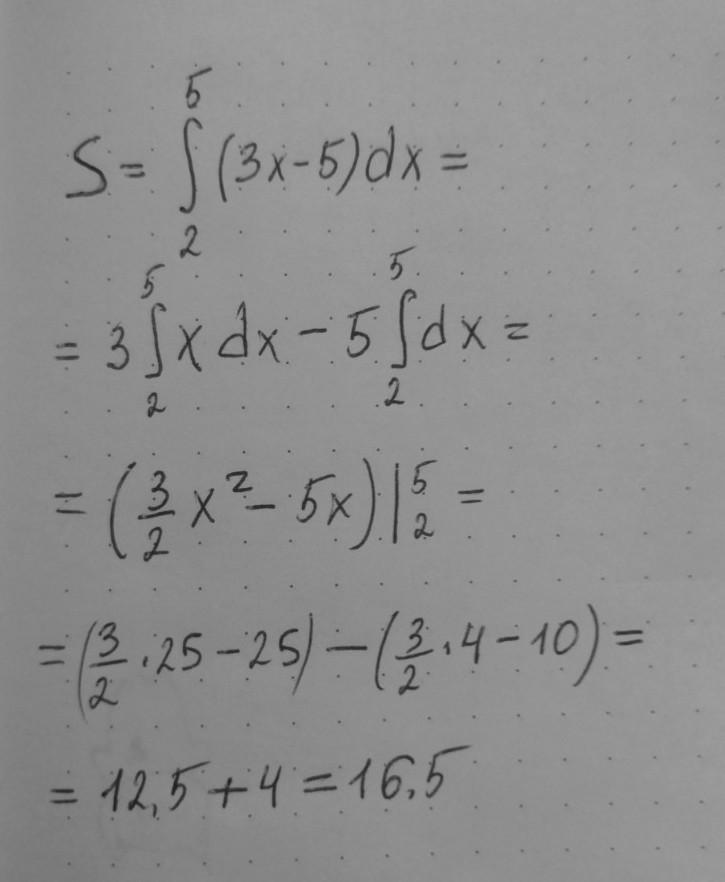 S = ∫₂⁵ (3x - 5) dx =
= 3 ∫₂⁵ x dx - 5 ∫₂⁵ dx =
= (3/2 x² - 5x) |₂⁵ =
= (3/2 · 25 - 25) - (3/2 · 4 - 10) =
= 12,5 + 4 = 16,5